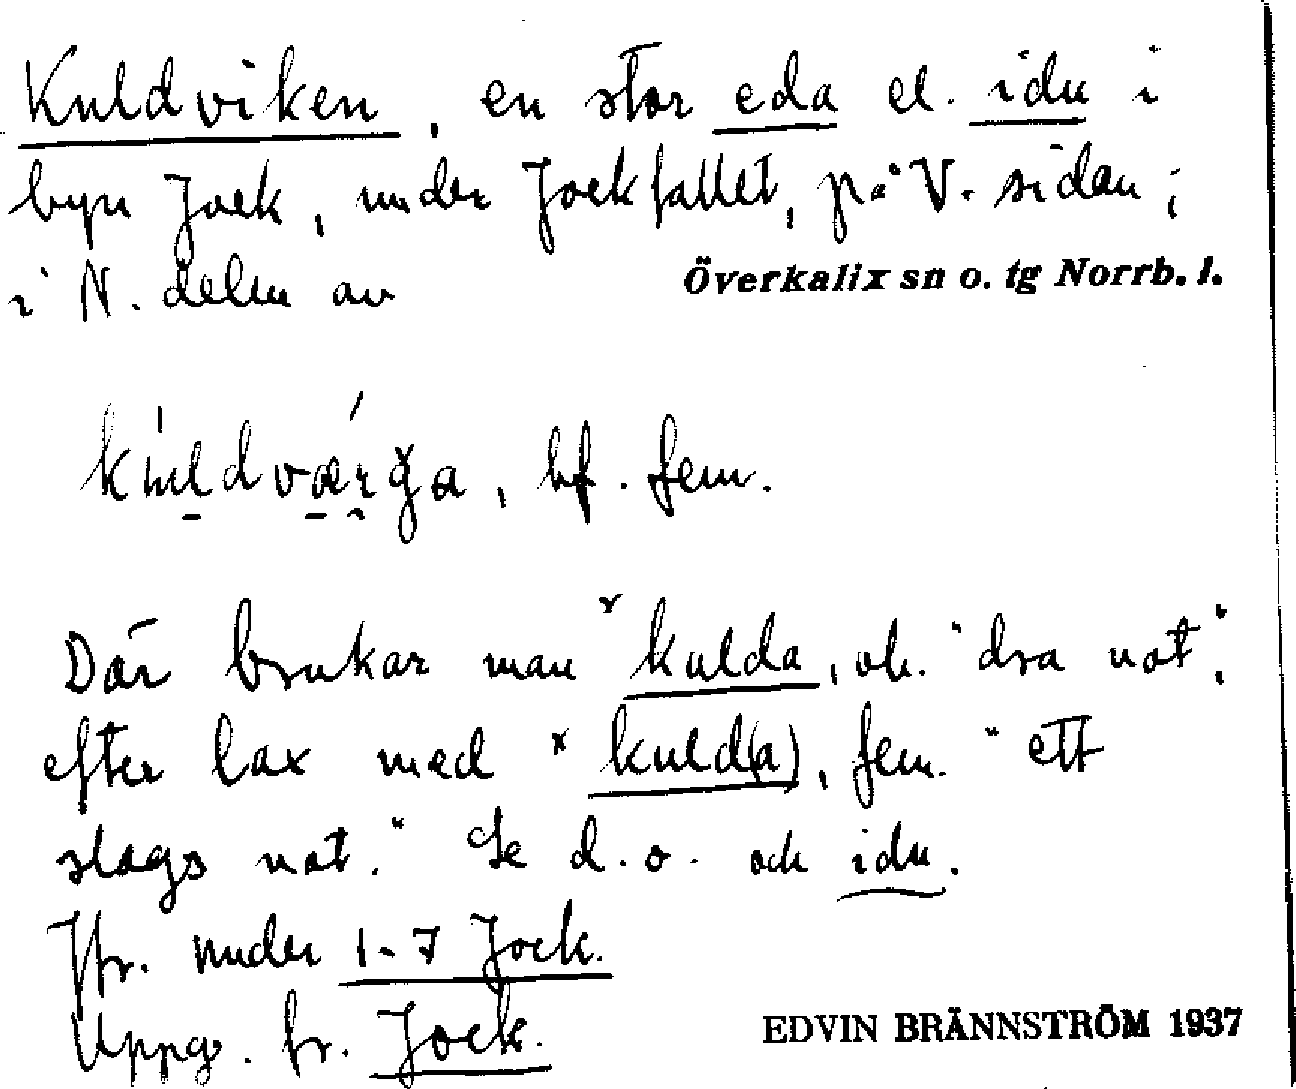 Kuldviken, en stor eda el. idu i
byn Jock, under Jockfallet, på V. sidan;
i N. delen av Överkalix sn o. tg Norrb. l.
bf. fem.
Där brukar man *kulda, vb. "dra not",
efter lax med *kuld(a), fem. "ett
slags not." Se d. o. och idu.
Jfr. under 1-7 Jock.
Uppg. fr. Jock.
EDVIN BRÄNNSTRÖM 1937